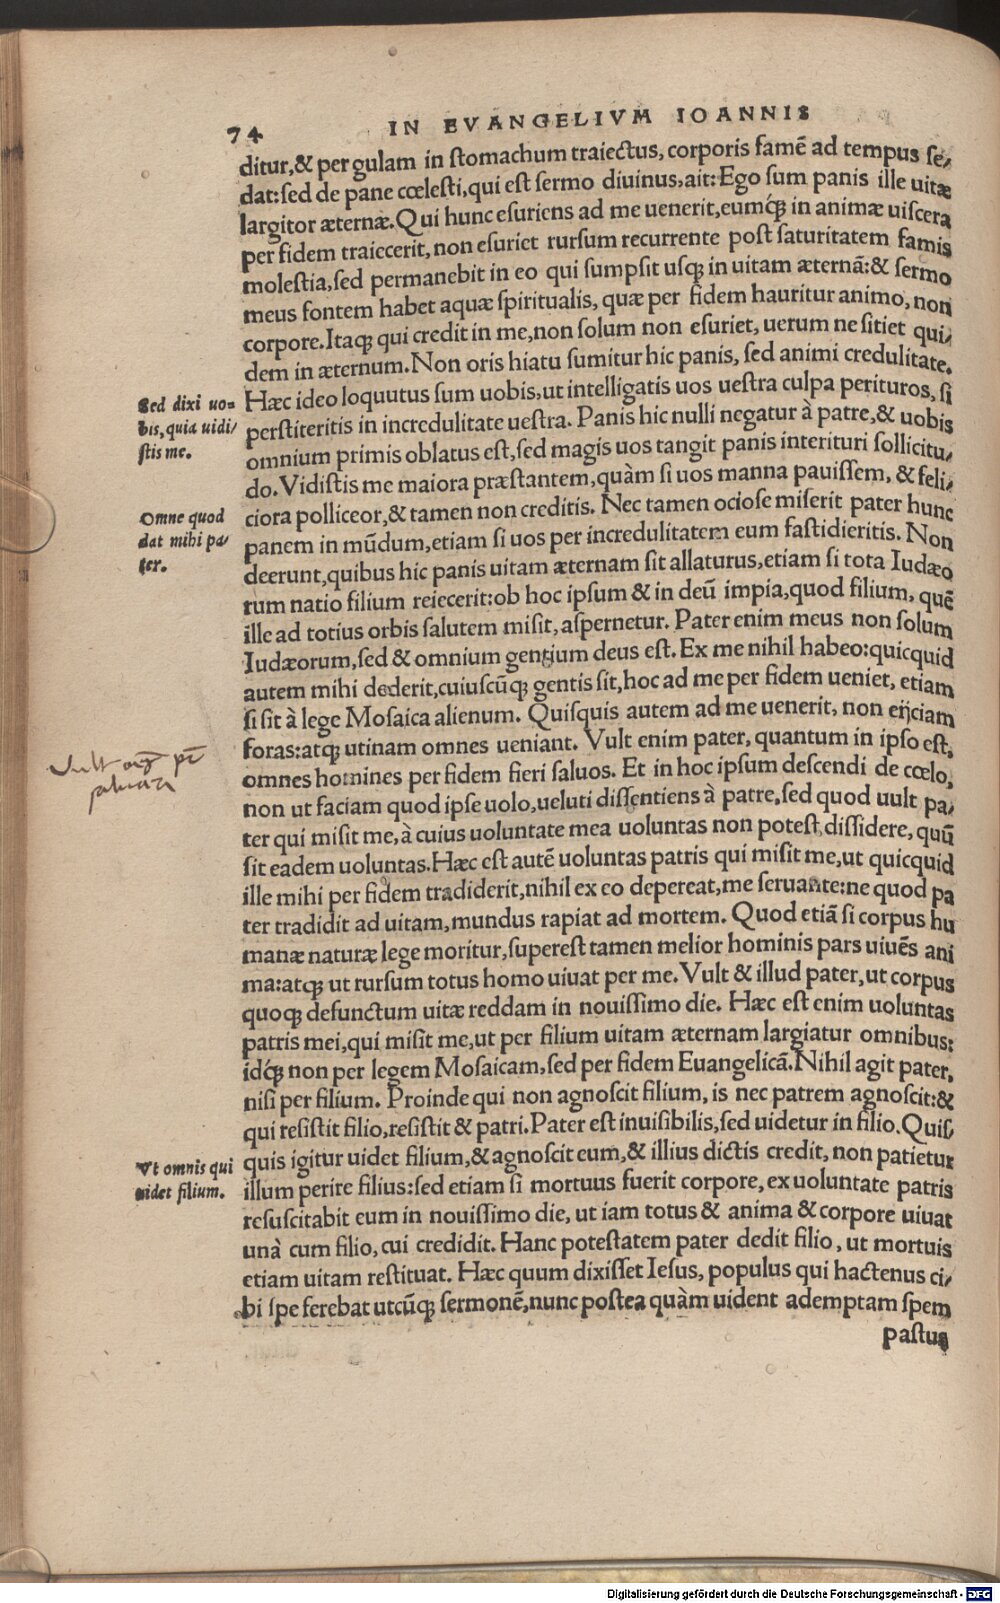 74 IN EVANGELIVM IOANNIS
ditur,& per gulam in stomachum traiectus, corporis famē ad tempus se/
dat: sed de pane cœlesti, qui est sermo diuinus, ait: Ego sum panis ille uitæ
largitor æternæ. Qui hunc esuriens ad me uenerit, eumq́ꝫ in animæ uiscera
per fidem traiecerit, non esuriet rursum recurrente post saturitatem famis
molestia, sed permanebit in eo qui sumpsit usqꝫ in uitam æternā: & sermo
meus fontem habet aquæ spiritualis, quæ per fidem hauritur animo, non
corpore. Itaqꝫ qui credit in me, non solum non esuriet, uerum ne sitiet qui/
dem in æternum. Non oris hiatu sumitur hic panis, sed animi credulitate.
Sed dixi uo=
bis, quia uidi/
stis me.
Hæc ideo loquutus sum uobis, ut intelligatis uos uestra culpa perituros, si
perstiteritis in incredulitate uestra. Panis hic nulli negatur à patre, & uobis
omnium primis oblatus est, sed magis uos tangit panis interituri sollicitu/
do. Vidistis me maiora præstantem, quàm si uos manna pauissem, & feli/
Omne quod
dat mihi pa/
ter.
ciora polliceor, & tamen non creditis. Nec tamen ociose miserit pater hunc
panem in mūdum, etiam si uos per incredulitatem eum fastidieritis. Non
deerunt, quibus hic panis uitam æternam sit allaturus, etiam si tota Iudæo
rum natio filium reiecerit: ob hoc ipsum & in deū impia, quod filium, quē
ille ad totius orbis salutem misit, aspernetur. Pater enim meus non solum
Iudæorum, sed & omnium gentium deus est. Ex me nihil habeo: quicquid
autem mihi dederit, cuiuscūqꝫ gentis sit, hoc ad me per fidem ueniet, etiam
si sit à lege Mosaica alienum. Quisquis autem ad me uenerit, non eijciam
foras: atqꝫ utinam omnes ueniant. Vult enim pater, quantum in ipso est,
omnes homines per fidem fieri saluos. Et in hoc ipsum descendi de cœlo,
non ut faciam quod ipse uolo, ueluti dissentiens à patre, sed quod uult pa/
ter qui misit me, à cuius uoluntate mea uoluntas non potest dissidere, quū
sit eadem uoluntas. Hæc est autē uoluntas patris qui misit me, ut quicquid
ille mihi per fidem tradiderit, nihil ex eo depereat, me seruante: ne quod pa
ter tradidit ad uitam, mundus rapiat ad mortem. Quod etiā si corpus hu
manæ naturæ lege moritur, superest tamen melior hominis pars uiuēs ani
ma: atqꝫ ut rursum totus homo uiuat per me. Vult & illud pater, ut corpus
quoqꝫ defunctum uitæ reddam in nouissimo die. Hæc est enim uoluntas
patris mei, qui misit me, ut per filium uitam æternam largiatur omnibus:
idq́ꝫ non per legem Mosaicam, sed per fidem Euangelicā. Nihil agit pater,
nisi per filium. Proinde qui non agnoscit filium, is nec patrem agnoscit: &
qui resistit filio, resistit & patri. Pater est inuisibilis, sed uidetur in filio. Quis/
Vt omnis qui
uidet filium.
quis igitur uidet filium, & agnoscit eum, & illius dictis credit, non patietur
illum perire filius: sed etiam si mortuus fuerit corpore, ex uoluntate patris
resuscitabit eum in nouissimo die, ut iam totus & anima & corpore uiuat
unà cum filio, cui credidit. Hanc potestatem pater dedit filio, ut mortuis
etiam uitam restituat. Hæc quum dixisset Iesus, populus qui hactenus ci/
bi spe ferebat utcūqꝫ sermonē, nunc postea quàm uident ademptam spem
pastus
Digitalisierung gefördert durch die Deutsche Forschungsgemeinschaft - DFG